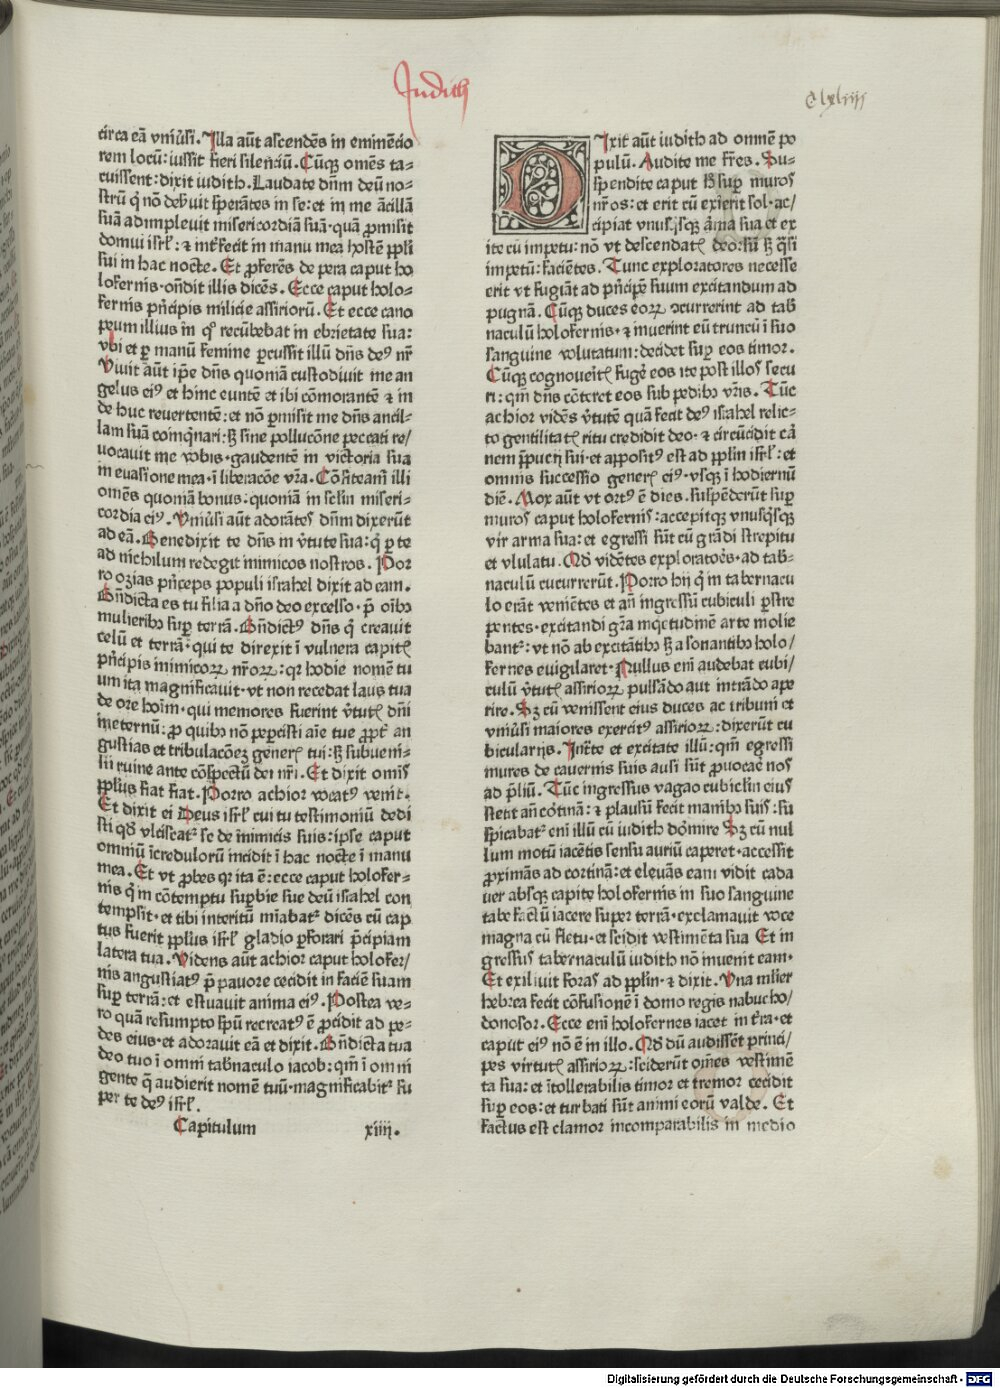 Judith
clxliiii
circa eā vniũsi. Illa aūt ascendēs in eminēcio
rem locū: iussit fieri silenciū. Cūqꝫ omēs ta-
cuissent: dixit iudith. Laudate dn̄m deū no-
strū q̇ nō deẜuit sperātes in se: et in me ācillā
suā adimpleuit misericordiā suā· quā ꝓmisit
domui isrl̓: ⁊ int̓fecit in manu mea hostē ppl̓i
sui in hac nocte. Et ꝓferēs de pera caput ho
lofernis· on̄dit illis dicēs. Ecce caput holo-
fernis pn̄cipis milicie assirioꝝ. Et ecce cano
peum illius in qͦ recūbebat in ebrietate sua:
vbi et ꝑ manū femine ꝑcussit illū dn̄s deꝰ nr̄
Viuit aūt ip̄e dn̄s quoniā custodiuit me an
gelus eiꝰ et hinc euntē et ibi cōmorantē ⁊ in
de huc reuertentē: et nō ꝑmisit me dn̄s ancil-
lam suā coinq̇nari: sꝫ sine pollucōne peccati re/
uocauit me vobis· gaudentē in victoria sua
in euasione mea· ī liberacōe vr̄a. Cōfiteam̄ illi
omēs quoniā bonus: quoniā in sclm̄ miseri-
cordia eiꝰ. Vniũsi aūt adorātes dn̄m dixerūt
ad eā. Benedixit te dn̄s in v̓tute sua: q̇ ꝑ te
ad nichilum redegit inimicos nostros. Por
ro ozias pn̄ceps populi israhel dixit ad eam.
Bn̄dicta es tu filia a dn̄o deo excelso· p̄ oīb⁹
mulierib⁹ suꝑ terrā. Bn̄dictꝰ dn̄s q̇ creauit
celū et terrā· qui te direxit ī vulnera capitꝭ
pn̄cipis inimicoꝝ nr̄oꝝ: qꝛ hodie nomē tu
um ita magnificauit· vt non recedat laus tua
de ore hoīm· qui memores fuerint v̓tutꝭ dn̄i
ineternū: ꝓ quib⁹ nō peꝑcisti aīe tue ꝓpt̓ an
gustias et tribulacōeꝫ generꝭ tui: sꝫ subueni-
sti ruine ante cōspectū dei nr̄i. Et dixit omīs
ppl̓us fiat fiat. Porro achior vocatꝰ venit.
Et dixit ei Deus isrl̓ cui tu testimoniū dedi
sti qd̓ vlciscat᷑ se de īimicis suis: ipse caput
omniū īcredulorū incidit ī hac nocte ī manu
mea. Et vt ꝓbes qꝛ ita ē: ecce caput holofer-
nis q̇ in cōtemptu suꝑbie sue deū israhel con
tempsit· et tibi interitū miabat᷑ dicēs cū cap
tus fuerit ppl̓us isrl̓ gladio ꝑforari p̄cipiam
latera tua. Videns aūt achior caput holofer/
nis angustiatꝰ p̄ pauore cecidit in faciē suam
suꝑ terrā: et estuauit anima eiꝰ. Postea ve-
ro quā resumpto sp̄u recreatꝰ ē ꝓcidit ad pe-
des eius· et adorauit eā et dixit. Bn̄dicta tua
deo tuo ī omni tab̓naculo iacob: qm̄ ī omni
gente q̄ audierit nomē tuū· magnificabit᷑ su
per te deꝰ isrl̓.
Capitulum xiiij.
DIxit aūt iudith ad omnē po
pulū. Audite me fr̄es. Su-
spendite caput h̓ suꝑ muros
nr̄os: et erit cū exierit sol· ac/
cipiat vnusq̇sqꝫ arma sua et ex
ite cū impetu: nō vt descendatꝭ deorsū sꝫ q̇si
impetū faciētes. Tunc exploratores necesse
erit vt fugiāt ad pn̄cipē suum excitandum ad
pugnā. Cūqꝫ duces eoꝝ ꝯcurrerint ad tab̓
naculū holofernis· ⁊ inuerint eū truncū ī suo
sanguine volutatum: decidet suꝑ eos timor.
Cūqꝫ cognoueritꝭ fuge̓ eos ite post illos secu
ri: qm̄ dn̄s cōteret eos sub pedib⁹ vr̄is. Tūc
achior vidēs v̓tutē quā fecit deꝰ israhel relic-
to gentilitatꝭ ritu credidit deo· ⁊ circūcidit car̄
nem p̄pucij sui· et apposit⁹ est ad ppl̓m isrl̓: et
omnis successio generꝭ eiꝰ· vsqꝫ ī hodiernū
diē. Mox aūt vt ortꝰ ē dies. suspēderūt suꝑ
muros caput holofernis: accepitqꝫ vnusq̇sqꝫ
vir arma sua: et egressi sūt cū grādi strepitu
et vlulatu. Qd̓ vidētes exploratores· ad tab̓-
naculū cucurrerūt. Porro hij q̇ in tabernacu
lo erāt veniētes et an̄ ingressū cubiculi ꝑstre
pentes· excitandi gr̄a inq̇etudinē arte molie
bant᷑: vt nō ab excitātib⁹ sꝫ a sonantib⁹ holo/
fernes euigilaret. Nullus eni audebat cubi/
culū v̓tutꝭ assirioꝝ pulsādo aut intrādo ape
rire. Sꝫ cū venissent eius duces ac tribuni et
vniũsi maiores exercitꝰ assirioꝝ: dixerūt cu
biculariis. Int̓te et excitate illū: qm̄ egressi
mures de cauernis suis ausi sūt ꝓuocare nos
ad p̄liū. Tūc ingressus vagao cubicl̓m eius
stetit an̄ cōtinā: ⁊ plausū fecit manib⁹ suis: su
spicabat᷑ eni illū cū iudith dormire Sꝫ cū nul
lum motū iacētis sensu auriū caperet· accessit
ꝓximās ad cortinā: et eleuās eam vidit cada
uer absqꝫ capite holofernis in suo sanguine
tabefactū iacere super terrā· exclamauit voce
magna cū fletu· et scidit vestimēta sua Et in
gressus tabernaculū iudith nō inuenit eam.
Et exiliuit foras ad ppl̓m· ⁊ dixit. Vna mlier
hebrea fecit cōfusionē ī domo regis nabucho/
donosor. Ecce eni holofernes iacet in t̓ra· et
caput eiꝰ nō ē in illo. Qd̓ dū audissēt princi/
pes virtutꝭ assirioꝝ: sciderūt omēs vestimē
ta sua: et ītollerabilis timor et tremor cecidit
suꝑ eos: et turbati sūt animi eorū valde. Et
factus est clamor incomparabilis in medio
Digitalisierung gefördert durch die Deutsche Forschungsgemeinschaft - DFG